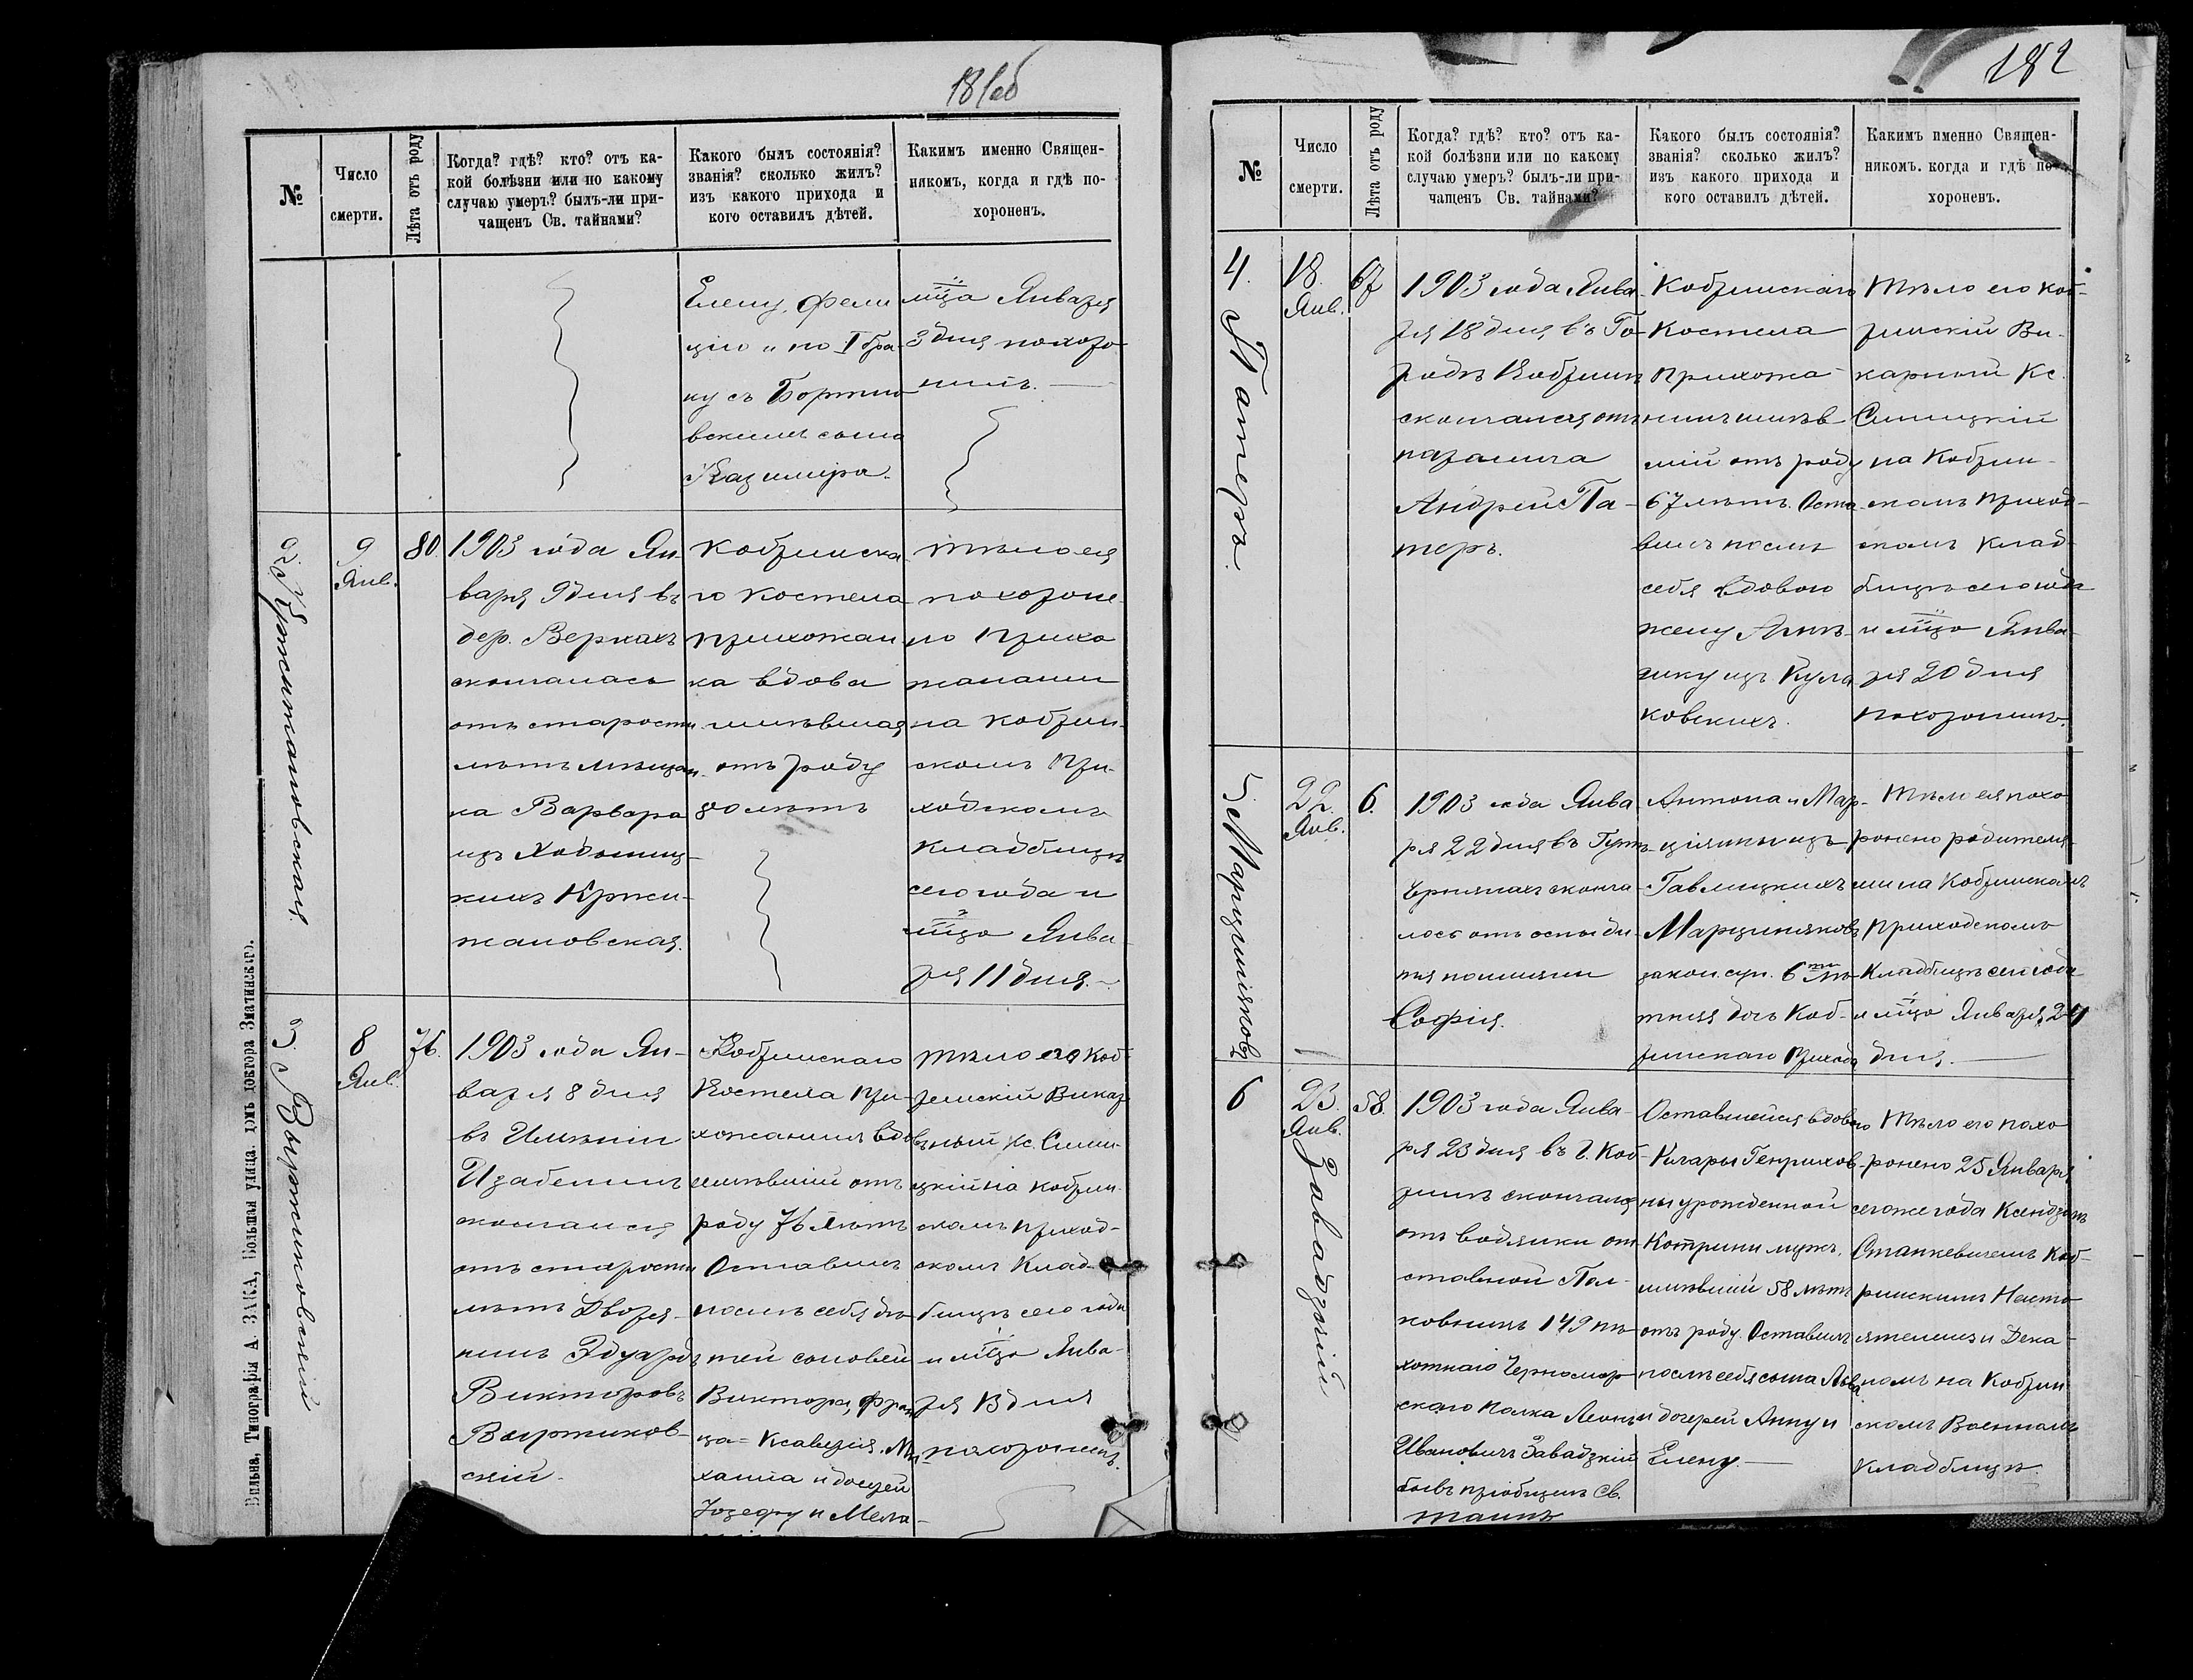 181об
№
Число
смерти.
Лѣта отъ роду
Когда? гдѣ? кто? отъ ка-
кой болѣзни или по какому
случаю умеръ? былъ-ли при-
чащенъ Св. тайнами?
Какого былъ состоянія?
званія? сколько жилъ?
изъ какого прихода и
кого оставилъ дѣтей.
Какимъ именно Священ-
никомъ, когда и гдѣ по-
хороненъ.
Елену, Фели
цію и по I бра-
ку съ Бортно
вскимъ сына
Казимира.
мца Января
3 дня похоро
нилъ.
2. Кржижановская
9
Янв.
80.
1903 года Ян-
варя 9 дня въ
дер. Верхахъ
скончалась
отъ старости
лѣтъ мѣщан-
ка Варвара
изъ
кихъ Кржи-
жановская.
Кобринска
го Костела
прихожан-
ка вдова
имѣвшая
отъ роду
80 лѣтъ
Тѣло ея
похороне-
но прихо
жанами
на Кобрин-
скомъ При-
ходскомъ
Кладбищѣ
сего года и
мца Янва-
ря 11 дня.
3
8
Янв.
76.
1903 года Ян-
варя 8 дня
въ Имѣніи
Изабелинъ
скончался
отъ старости
лѣтъ Дворя-
нинъ Эдуардъ
Викторовъ
скій.
Кобринскаго
Костела при-
хожанинъ вдо
имѣвшій отъ
роду 76 лѣтъ
Оставилъ
послѣ себя дѣ-
тей сыновей
Виктора, Фран
ца-Ксаверія, Ми
хаила и дочерей
Юзефу и Мела-
Тѣло его Коб-
ринскій Викар
ный Кс. Сини-
цкій на Кобрин-
скомъ приход-
скомъ Клад-
бищѣ сего года
и мца Янва-
ря 13 дня
похоронилъ.
Вильна, Типографія А. ЗАКА, Большая улица. домъ доктора Зматинскаго.
182
№
Число
смерти.
Лѣта отъ роду
Когда? гдѣ? кто? отъ ка-
кой болѣзни или по какому
случаю умеръ? былъ-ли при-
чащенъ Св. тайнами?
Какого былъ состоянія?
званія? сколько жилъ?
изъ какого прихода и
кого оставилъ дѣтей.
Какимъ именно Священ-
никомъ. когда и гдѣ по-
хороненъ.
4. Патеръ.
18.
Янв.
67
1903 года Янва-
ря 18 дня, въ Го-
родѣ Кобринѣ
скончался отъ
паралича
Андрей Па-
теръ.
Кобринскаго
Костела
прихожа-
нинъ имѣв
шій отъ роду
67 лѣтъ. Оста-
вилъ послѣ
себя вдовою
жену
изъ Кула
ковскихъ.
Тѣло его Коб-
ринскій Ви-
карный Кс.
Синицкій
на Кобрин-
скомъ Приход-
скомъ Клад-
бищѣ сего года
и мца Янва-
ря 20 дня
похоронилъ.
5. Марциніяковъ
22.
Янв.
6.
1903 года Янва-
ря 22 дня въ
сконча-
лось отъ оспы ди-
тя по имени
Софія.
Антона и Мар-
цілины изъ
Гавлицкихъ
Марциніяковъ
закон. суп. 6ти лѣ-
тняя дочь Коб-
ринскаго прихода
Тѣло ея похо
ронено родителя-
ми на Кобринскомъ
Приходскомъ
Кладбищѣ сего года
и мца Января 24
дня.
6 Завадзкій
23.
Янв.
58.
1903 года Янва-
ря 23 дня въ г. Коб-
ринѣ скончался
отъ водянки от-
ставной Пол-
ковникъ 149 пѣ-
хотнаго Черномор-
скаго полка Леонъ
Ивановичъ Завадзкій
бывъ пріобщенъ Св.
таинъ
Оставшейся вдовою
Клары Генрихов-
ны урожденной
Котрини мужъ,
имѣвшій 58 лѣтъ
отъ роду. Оставилъ
послѣ себя сына Льва
и дочерей Анну и
Елену.
Тѣло его похо
ронено 25 Января
сего же года Ксендзомъ
Станкевичемъ Коб-
ринскимъ Насто
ятелемъ и Дека-
номъ на Кобрин
скомъ Военномъ
Кладбищѣ.